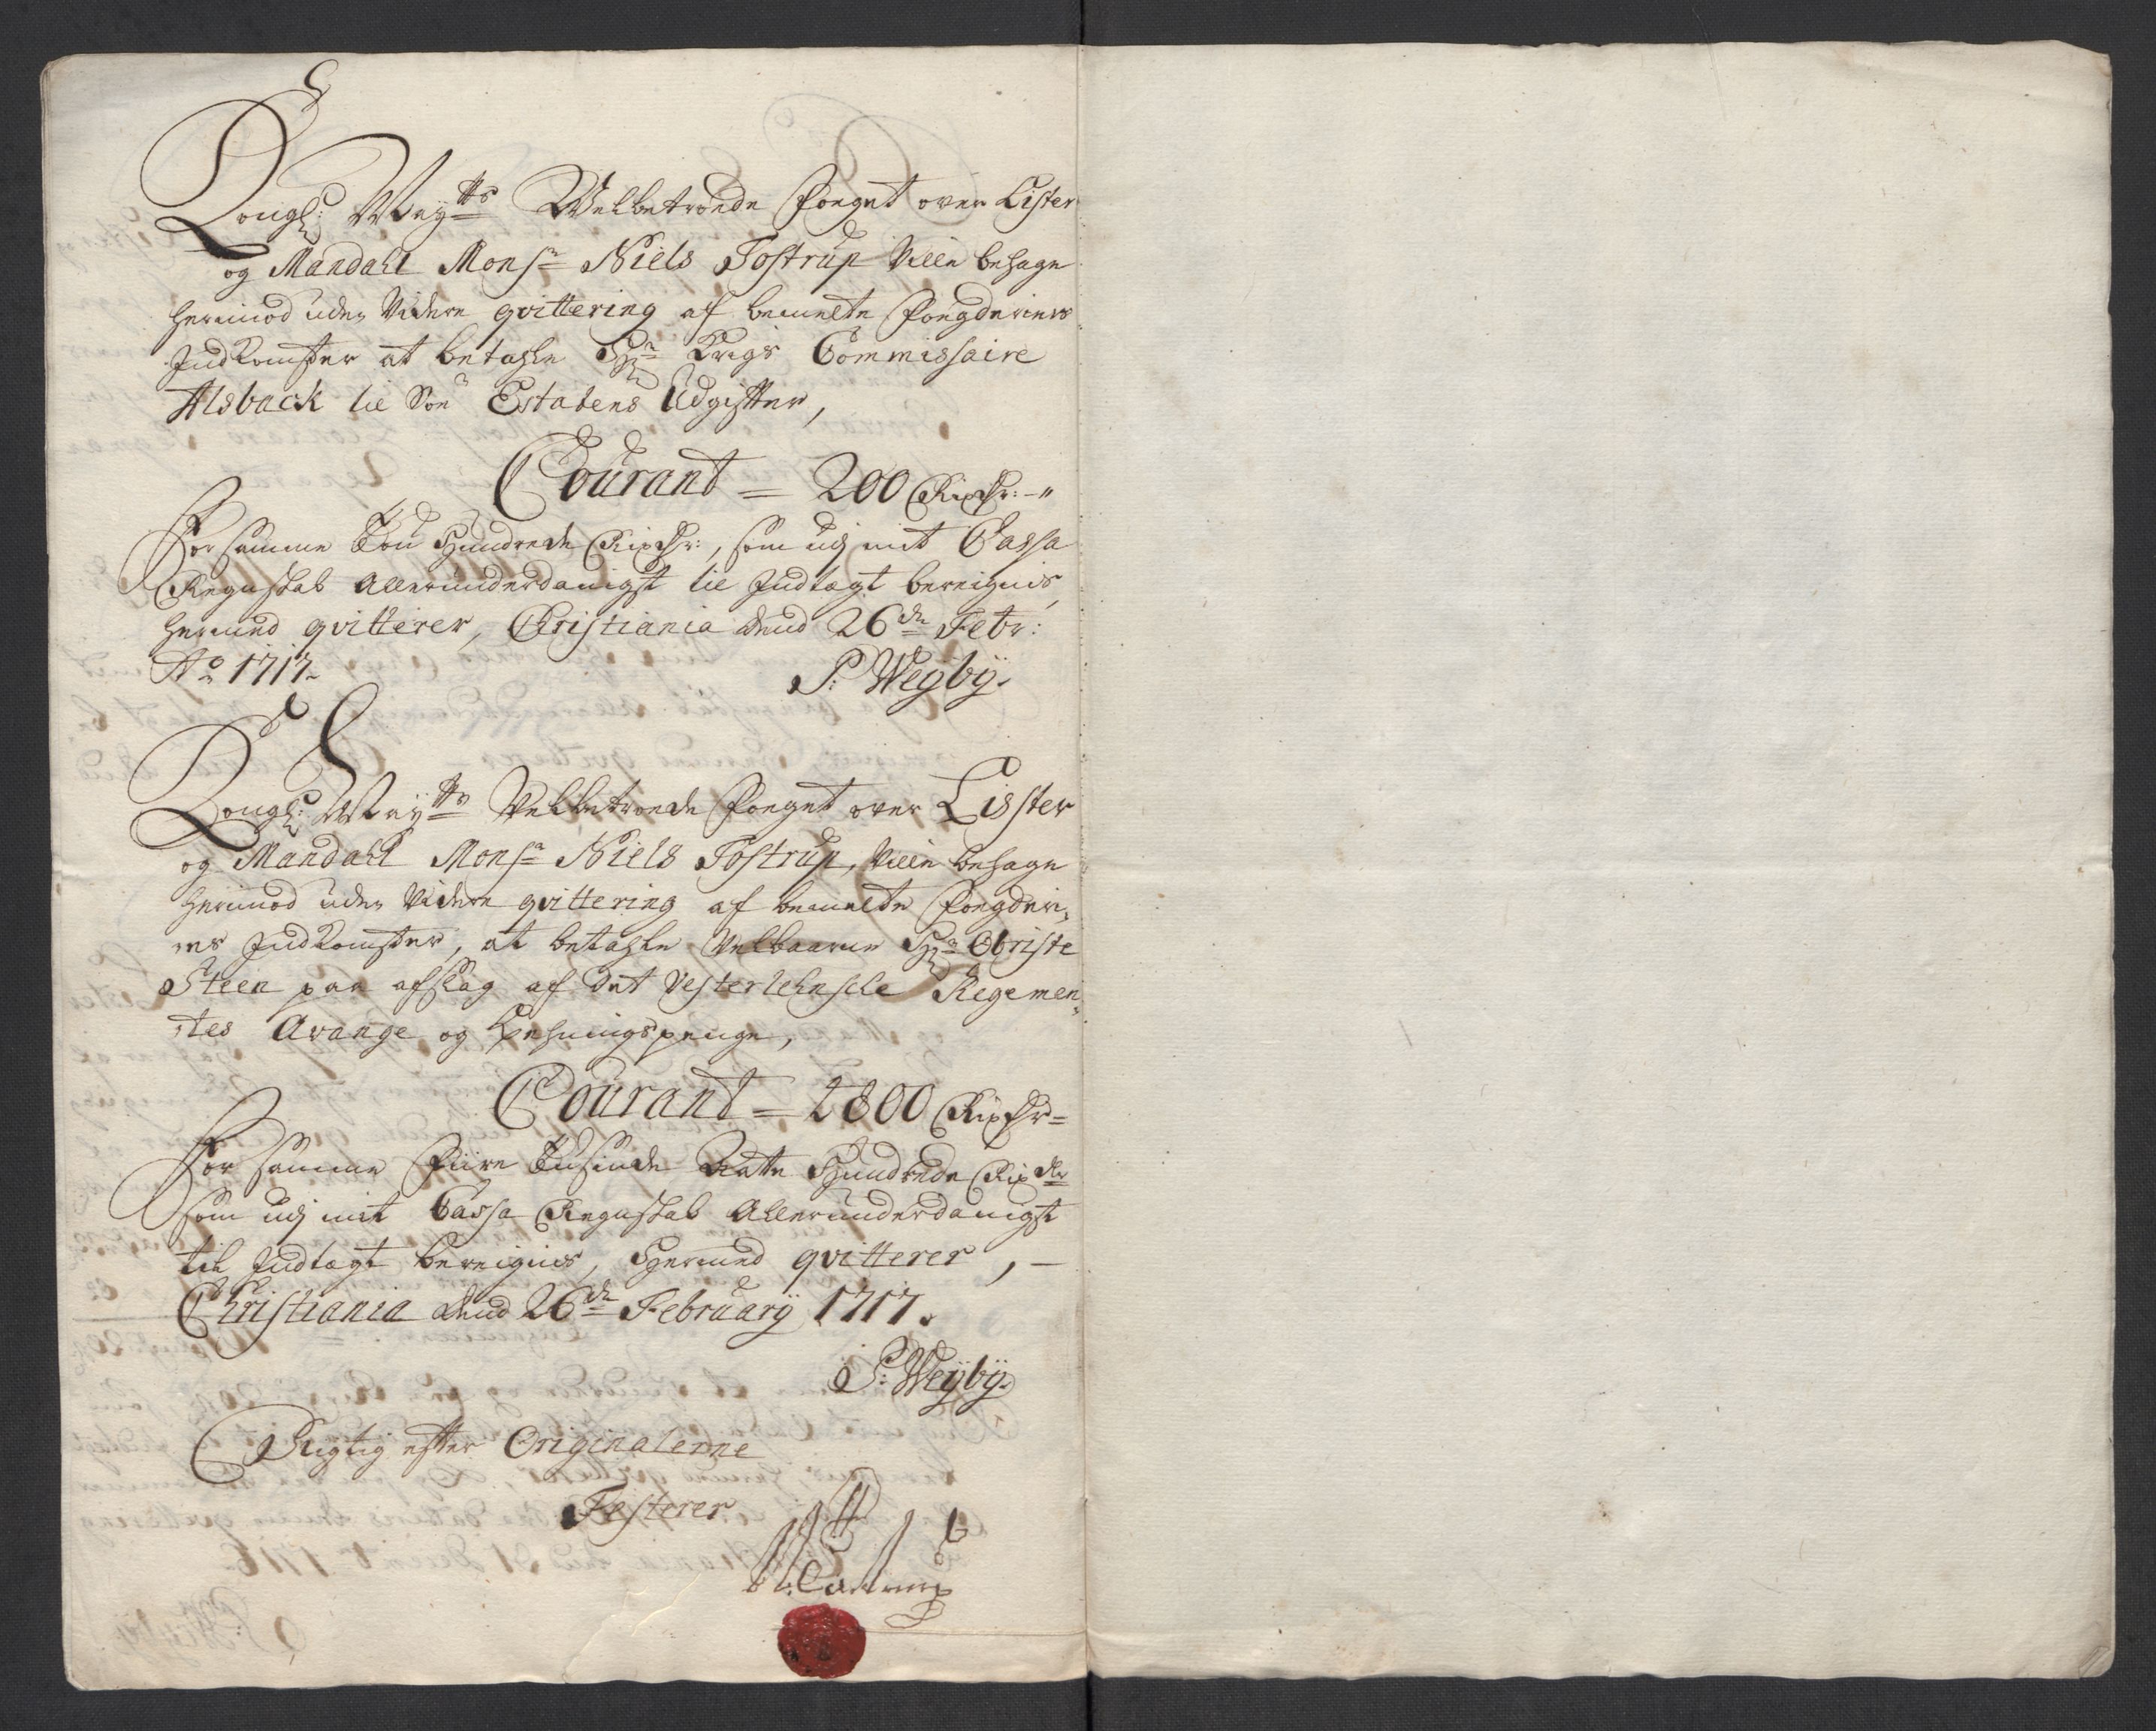 Kongl: May:tts Welbetroede Foeget over Lister
og Mandahl Monsr Niels Tostrup ville behage
herimod uden videre qvittering af bemelte Foegderiers
Indkomster at betahle Hr Krigs Commissaire
Alsback til Søe Estatens Udgifter,
Courant = 200 Rixdr:-"
For samme Toe Hundrede Rixdr:, som udj mit Cassa
Regnskab Allerunderdanigst til Indtægt bereignis,
hermed qvitterer, Christiania dend 26de Febr:
Ao 1717.
P: Weyby.
Kongl: Mayts Velbetroede Foeget over Lisster
og Mandahl Monsr Niels Tostrup, ville behage
herimod uden videre qvittering af bemelte Foegderi,,
ers Indkomster, at betahle Velbaarne Hr Obriste
Steen paa afslag af det Vesterlehnsche Regemen,,
tes Avange og Lehningspenge,
Courant = 4800 Rixdr=
For samme Fiire Tusinde Aatte Hundrede Rixdr
som udj mit Cassa Regnskab Allerunderdanigst
til Indtægt bereignes, Hermed qvitterer, –
Christiania dend 26de February 1717.
P: Weyby.
Rigtig efter Originalerne
Testerer
N: Tostrup